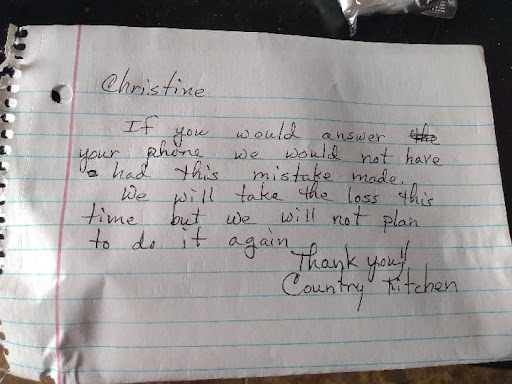 Christine
If you would answer
your phone we would not have
had this mistake made.
We will take the loss this
time but we will not plan
to do it again
Thank you!!
Country Kitchen